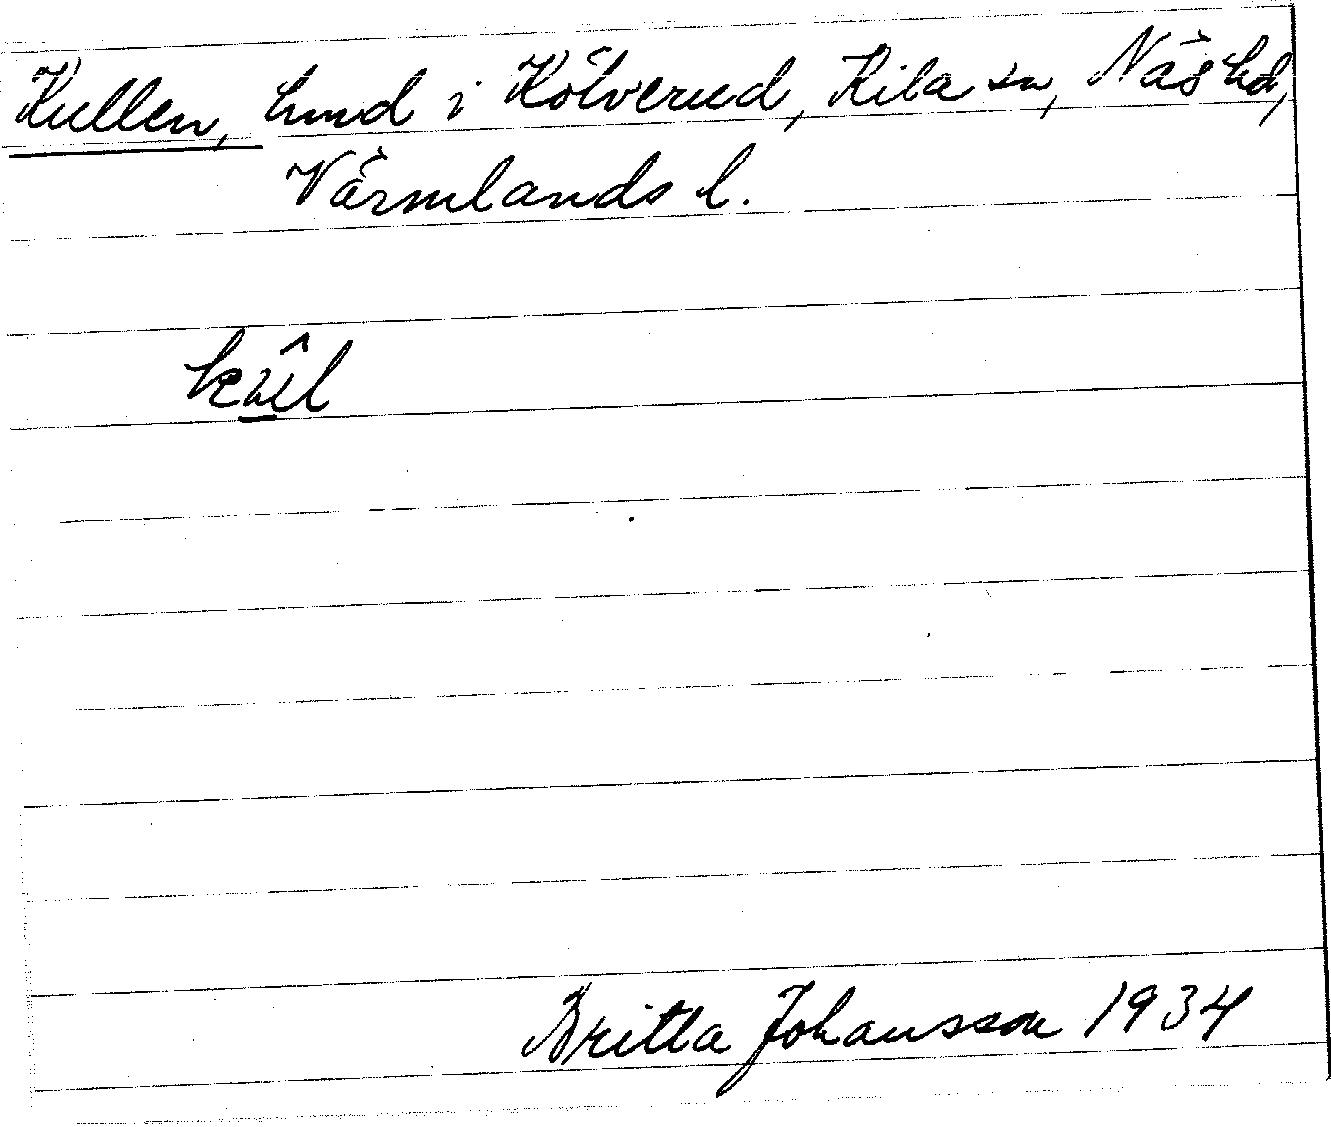 Kullen, hmd i Kölverud, Kila sn, Näs hd,
Värmlands l.
kûl
Britta Johansson 1934